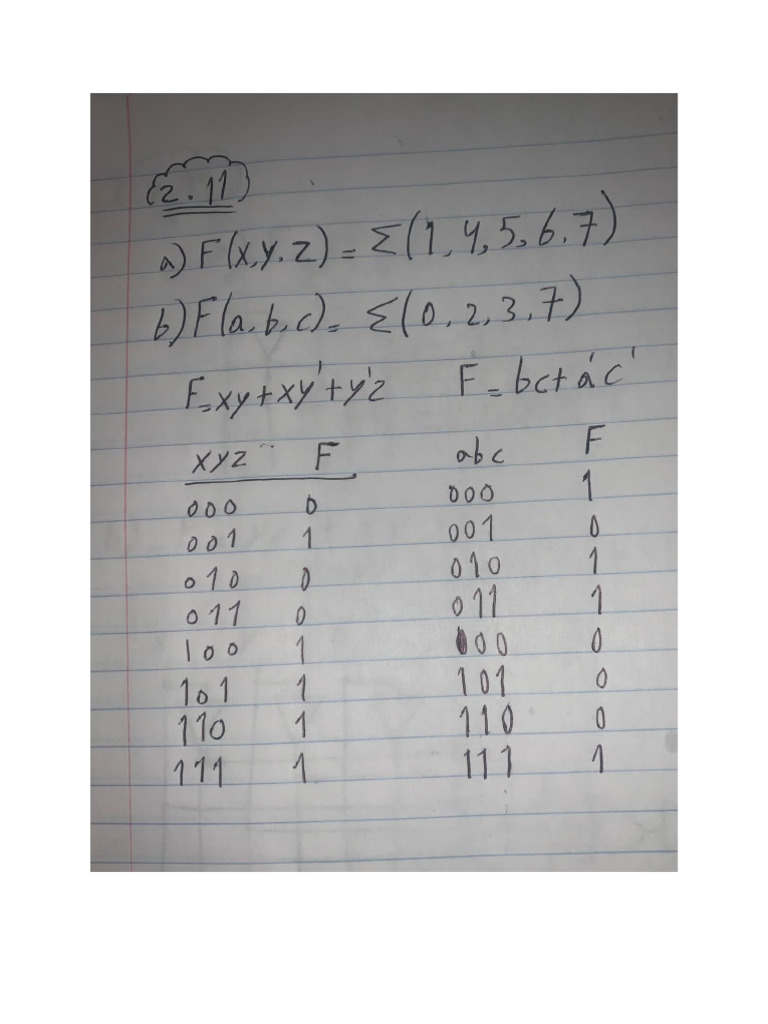 2.11
a) F(x,y,z) = Σ(1,4,5,6,7)
b) F(a,b,c) = Σ(0,2,3,7)
F=xy+xy'+y'z F=bc+a'c'
xyz F abc F
000 0 000 1
001 1 001 0
010 0 010 1
011 0 011 1
100 1 100 0
101 1 101 0
110 1 110 0
111 1 111 1